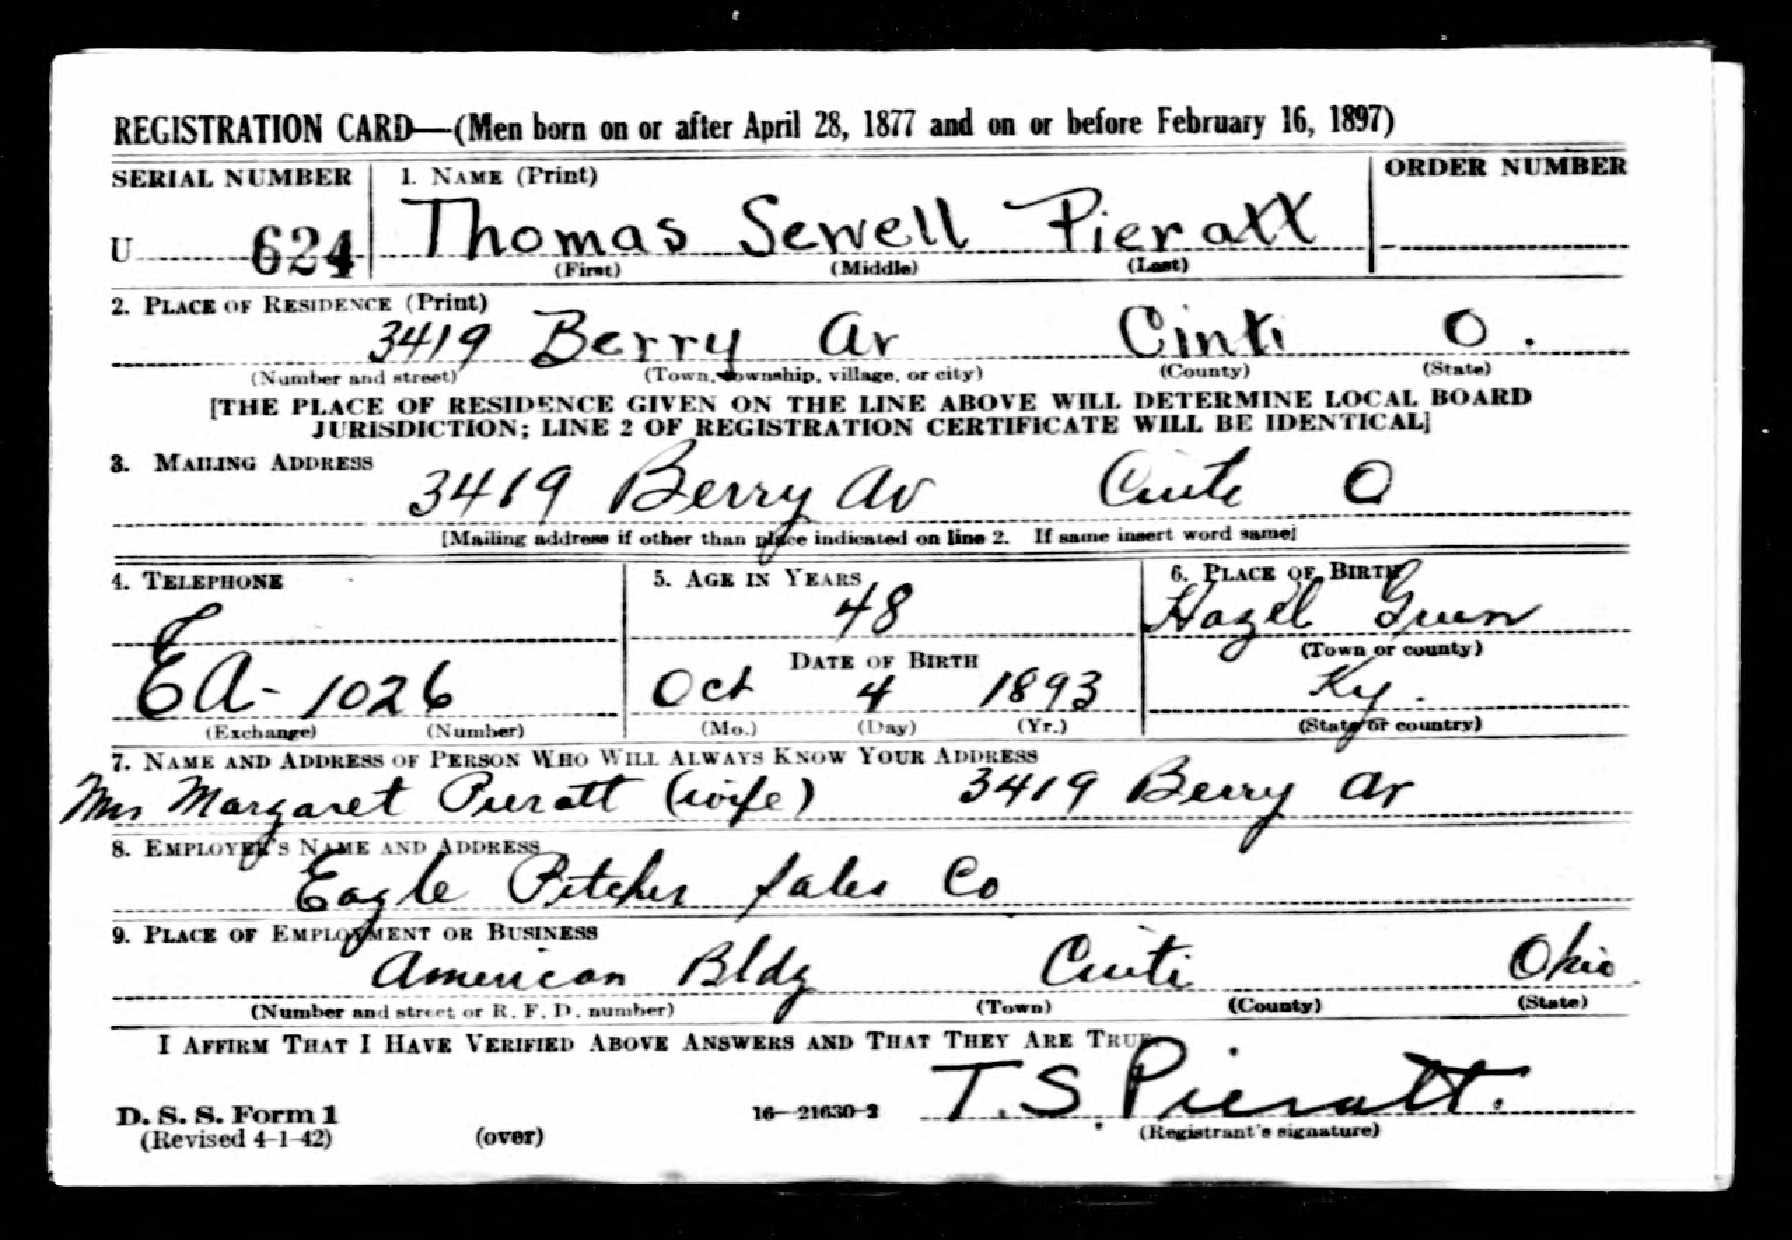 REGISTRATION CARD—(Men born on or after April 28, 1877 and on or before February 16, 1897)
SERIAL NUMBER 1. NAME (Print) ORDER NUMBER
U 624 Thomas Sewell Pieratt
(First) (Middle) (Last)
2. PLACE OF RESIDENCE (Print)
3419 Berry Av Cinti O.
(Number and street) (Town, township, village, or city) (County) (State)
[THE PLACE OF RESIDENCE GIVEN ON THE LINE ABOVE WILL DETERMINE LOCAL BOARD
JURISDICTION; LINE 2 OF REGISTRATION CERTIFICATE WILL BE IDENTICAL]
3. MAILING ADDRESS
3419 Berry Av Cinti O
[Mailing address if other than place indicated on line 2. If same insert word same]
4. TELEPHONE 5. AGE IN YEARS 6. PLACE OF BIRTH
48 Hazel Green
DATE OF BIRTH (Town or county)
EA-1026 Oct 4 1893 Ky.
(Exchange) (Number) (Mo.) (Day) (Yr.) (State or country)
7. NAME AND ADDRESS OF PERSON WHO WILL ALWAYS KNOW YOUR ADDRESS
Mrs Margaret Pieratt (wife) 3419 Berry Av
8. EMPLOYER'S NAME AND ADDRESS
Eagle Pitcher Sales Co
9. PLACE OF EMPLOYMENT OR BUSINESS
American Bldg Cinti Ohio
(Number and street or R. F. D. number) (Town) (County) (State)
I AFFIRM THAT I HAVE VERIFIED ABOVE ANSWERS AND THAT THEY ARE TRUE
T. S. Pieratt.
D. S. S. Form 1 16—21630-2
(Revised 4-1-42) (over) (Registrant's signature)